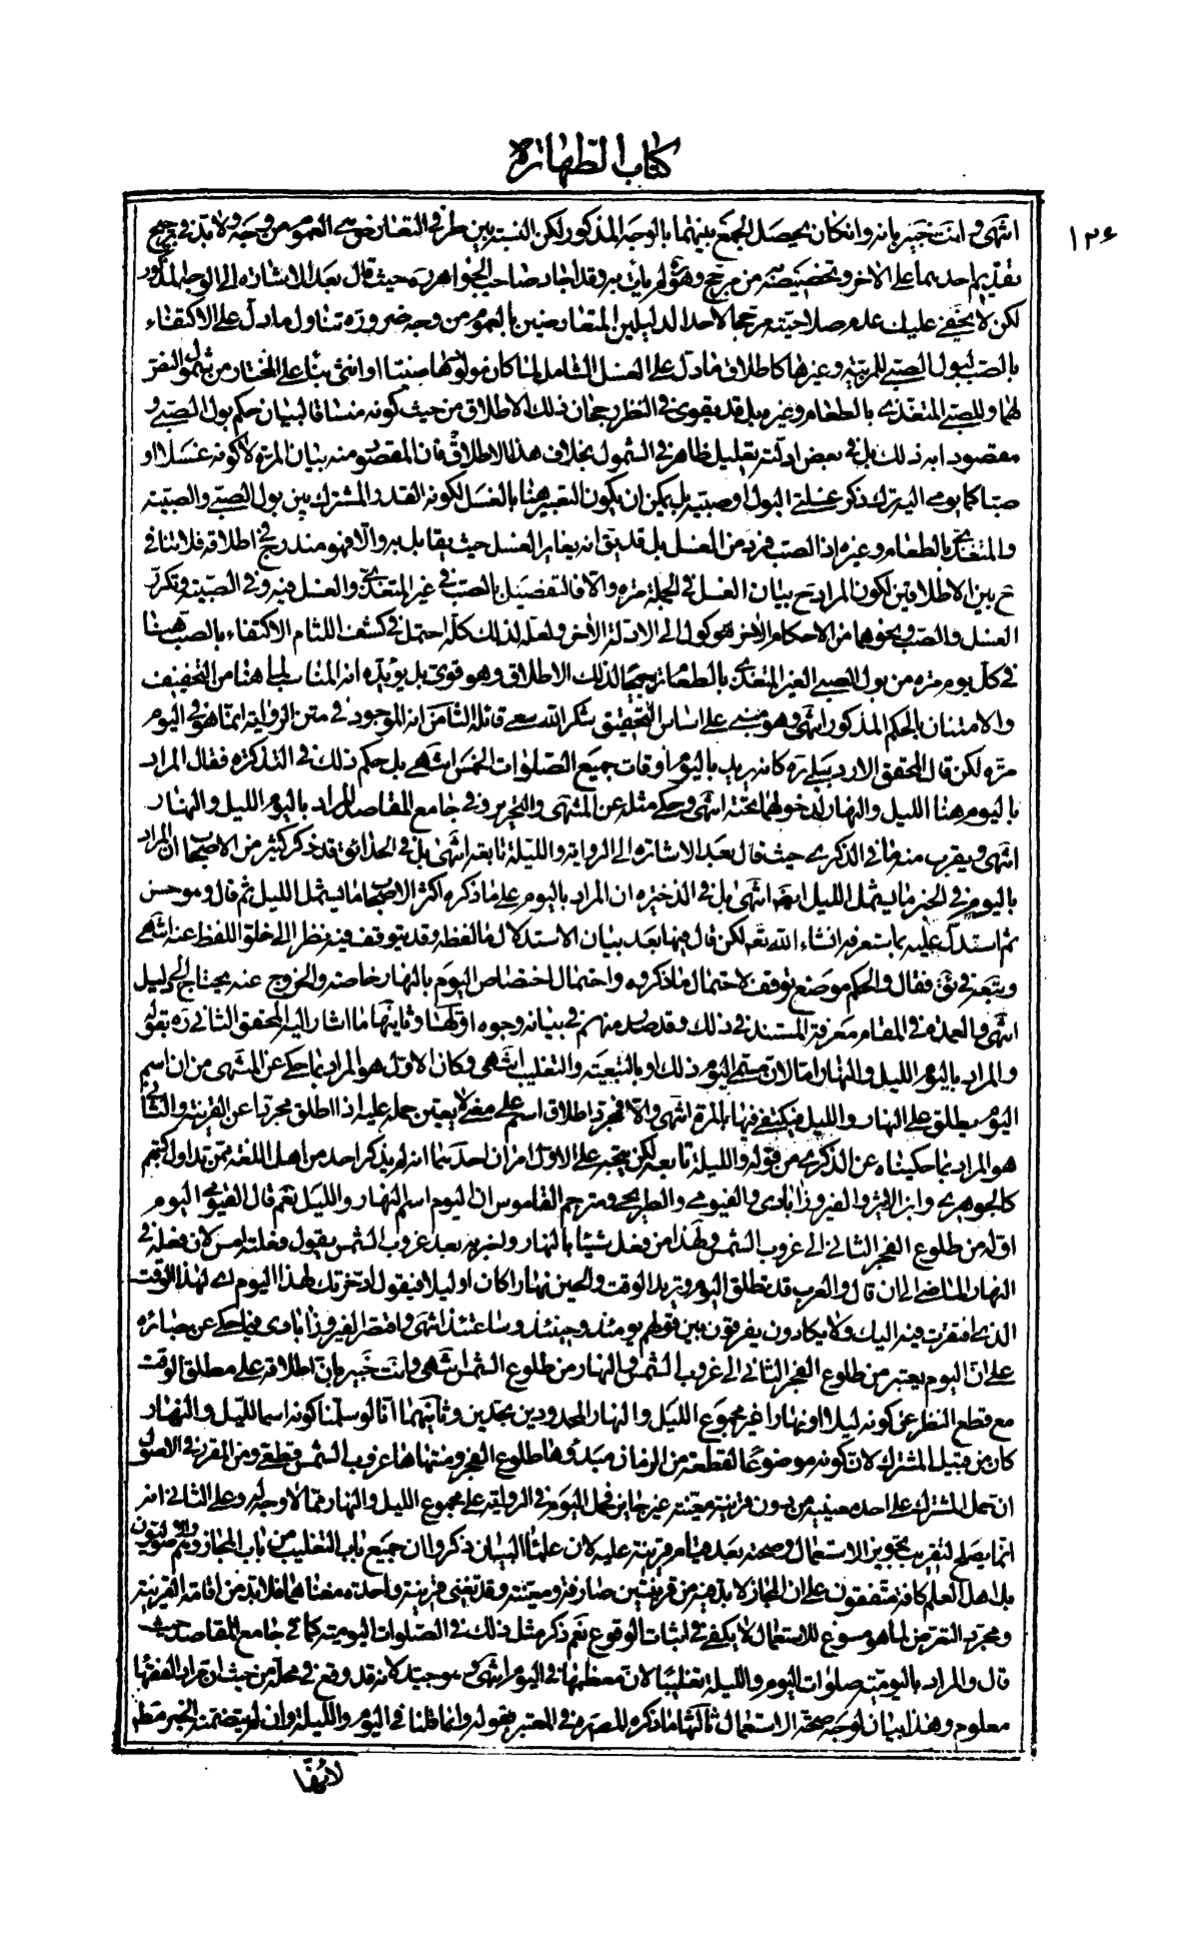 كتاب الطهارة
١٢۶
انتهى وانت خبير بانه وان كان يحصل الجمع بينهما بالوجه المذكور لكن النسبة بين طرفى التعارض هى العموم من وجه ولا بد فى ترجيح
تقديم احدهما على الاخر وتخصيصه من مرجح وهو لم يأت به وقد اجاد صاحب الجواهر ره حيث قال بعد الاشارة الى الوجه المذكور
لكن لا يخفى عليك عدم صلاحيته مرجحا لاحد الدليلين المتعارضين بالعموم من وجه ضرورة تناول ما دل على الاكتفاء
بالصب لبول الصبى للمربية وغيرها كاطلاق ما دل على الغسل الشامل لما كان مولودها صبيا او انثى بناء على المختار من شمول النص
لهما وللصبى المتغذى بالطعام وغيره بل قد يقوى فى النظر رجحان ذلك الاطلاق من حيث كونه منساقا لبيان حكم بول الصبى و
مقصودا به ذلك بل فى بعض ادلته تعليل ظاهر فى الشمول بخلاف هذا الاطلاق فان المقصود منه بيان المرة لا كونه غسلا او
صبا كما يومى اليه ترك ذكر غسلتى البول او صبتيه بل يمكن ان يكون التعبير هنا بالغسل لكونه القدر المشترك بين بول الصبى والصبية
والمتغذى بالطعام وغيره اذ الصب فرد من الغسل بل قد يق انه يغاير الغسل حيث يقابل به والا فهو مندرج فى اطلاقه فلا تنافى
ح بين الاطلاقين لكون المراد ح بيان الغسل فى الجملة مرة والا فالتفصيل بالصب فى غير المتغذى والغسل فيه وفى الصبية وتكرير
الغسل والصب ونحوها من الاحكام الاخر موكول الى الادلة الاخر ولعله لذلك كله احتمل فى كشف اللثام الاكتفاء بالصب هنا
فى كل يوم مرة من بول الصبى الغير المتغذى بالطعام ترجيحا لذلك الاطلاق وهو قوى بل يؤيده انه المناسب لما هنا من التخفيف
والامتنان بالحكم المذكور انتهى وهو مبنى على اساس التحقيق شكر الله سعى قائله الثامن انه الموجود فى متن الرواية انما هو فى اليوم
مرة لكن قال المحقق الاردبيلى ره كانه يريد باليوم اوقات جميع الصلوات الخمس انتهى بل حكم ذلك فى التذكرة فقال المراد
باليوم هنا الليل والنهار لدخولهما تحته انتهى وحكى مثله عن المنتهى والتحرير وفى جامع المقاصد المراد باليوم الليل والنهار
انتهى ويقرب منه ما فى الذكرى حيث قال بعد الاشارة الى الرواية والليلة تابعة انتهى بل فى الحدائق قد ذكر كثير من الاصحاب ان المراد
باليوم فى الخبر ما يشمل الليل ايضا انتهى بل فى الذخيرة ان المراد باليوم على ما ذكره اكثر الاصحاب ما يشمل الليل ثم قال وهو حسن
ثم استدل عليه بما ستعرفه انشاء الله تعم لكن قال فيها بعد بيان الاستدلال ما لفظه وقد يتوقف فيه نظرا الى خلو اللفظ عنه انتهى
فقال والحكم موضع توقف لاحتمال ما ذكروه واحتمال اختصاص اليوم بالنهار خاصة والخروج عنه يحتاج الى دليل
انتهى والعمدة فى المقام معرفة المستند فى ذلك وقد صدر منهم فى بيانه وجوه اولها وثانيها ما اشار اليه المحقق الثانى ره بقوله
والمراد باليوم الليل والنهار اما لان مسمى اليوم ذلك او بالتبعية والتغليب انتهى وكان الاول هو المراد بما حكى عن المنتهى من ان اسم
اليوم يطلق على النهار والليل فيكتفى فيها بالمرة انتهى والا فمجرد اطلاق اسم على معنى لا يعين حمله عليه اذا اطلق مجردا عن القرينة والثانى
هو المراد بما حكيناه عن الذكرى من قوله والليلة تابعة لكن يتجه على الاول امران احدهما انه لم يذكر احد من اهل اللغة ممن تداول كتبهم
كالجوهرى وابن الاثير والفيروزابادى والفيومى والطريحى ومترجم القاموس ان اليوم اسم للنهار والليل نعم قال الفيومى اليوم
اوله من طلوع الفجر الثانى الى غروب الشمس ولهذا من فعل شيئا بالنهار واخبر به بعد غروب الشمس يقول فعلته امس لان فعله فى
النهار الماضى الى ان قال والعرب قد تطلق اليوم وتريد الوقت والحين نهارا كان او ليلا فيقول ادخرتك لهذا اليوم اى لهذا الوقت
الذى افتقرت فيه اليك ولا يكادون يفرقون بين قولهم يومئذ وحينئذ وساعتئذ انتهى واقتصر الفيروزابادى فيما حكى عن بصائره
على ان اليوم يعتبر من طلوع الفجر الثانى الى غروب الشمس والنهار من طلوع الشمس انتهى وانت خبير بان اطلاقه على مطلق الوقت
مع قطع النظر عن كونه ليلا او نهارا غير مجموع الليل والنهار المحدودين بحدين وثانيهما انا لو سلمنا كونه اسما لليل والنهار
كان من قبيل المشترك لان كونه موضوعا لقطعة من الزمان مبدؤها طلوع الفجر ومنتهاها غروب الشمس قطعى ومن المقرر فى الاصول
ان حمل المشترك على احد معنييه من بدون قرينة معينة غير جايز فحمل اليوم فى الرواية على مجموع الليل والنهار مما لا وجه له وعلى الثانى انه
انما يصلح لتقريب تجويز الاستعمال وصحته بعد قيام قرينة عليه لان علماء البيان ذكروا ان جميع باب التغليب من باب المجاز
بل اهل العلم كافة متفقون على ان المجاز لا بد فيه من قرينتين صارفة ومعينة وقد تغنى قرينة واحدة مغناهما فلا بد من اقامة القرينة
ومجرد التعرض لما هو مسوغ للاستعمال لا يكفى فى اثبات الوقوع نعم ذكر مثل ذلك فى الصلوات اليومية كما فى جامع المقاصد حيث
قال والمراد باليومية صلوات اليوم والليلة تغليبا لان معظمها فى اليوم انتهى وهو جيد لانه قد وقع فى محله من حيث ان مراد الفقهاء
معلوم وهذا بيان لوجه صحة الاستعمال ثالثها ما ذكره المصنف ره فى المعتبر بقوله وانما قلنا فى اليوم والليلة وان لم يتضمنه الخبر لفظا